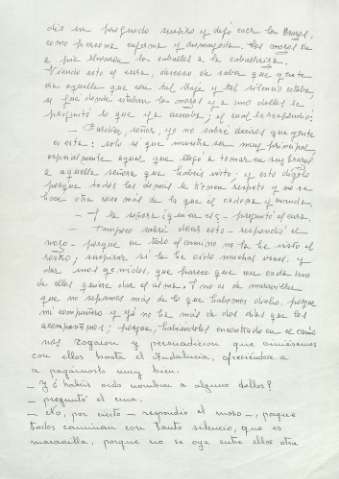 dió un profundo suspiro y dejó caer los brazos,
como persona enferma y desmayada. Los mozos de
a pie llevaron los caballos a la caballeriza.
Viendo esto el cura, deseoso de saber que gente
era aquella que con tal traje y tal silencio estaba,
se fue donde estaban los mozos y a uno dellos le
preguntó lo que ya deseaba; el cual le respondió:
— Pardiez, señor, yo no sabré deciros que gente
es esta: solo se que muestra ser muy principal,
especialmente aquel que llegó a tomar en sus brazos
a aquella señora que habéis visto; y esto dígolo
porque todos los demás le tienen respeto y no se
hace otra cosa más de la que el ordena y manda.
— Y la señora ¿quien es? — preguntó el cura.
— Tampoco sabré decir esto — respondió el
mozo —, porque en todo el camino no la he visto el
rostro; suspirar si la he oido muchas veces, y
dar unos gemidos, que parece que con cada uno
de ellos quiere dar el alma. Y no es de maravillar
que no sepamos más de lo que habemos dicho, porque
mi compañero y yo no ha más de dos días que los
acompañamos; porque, habiéndolos encontrado en el camino
nos rogaron y persuadieron que viniésemos
con ellos hasta el Andalucía, ofreciéndose a
a pagárnoslo muy bien.
— Y ¿habéis oido nombrar a alguno dellos?
— preguntó el cura.
— No, por cierto — respondió el mozo —, porque
todos caminan con tanto silencio, que es
maravilla, porque no se oye entre ellos otra